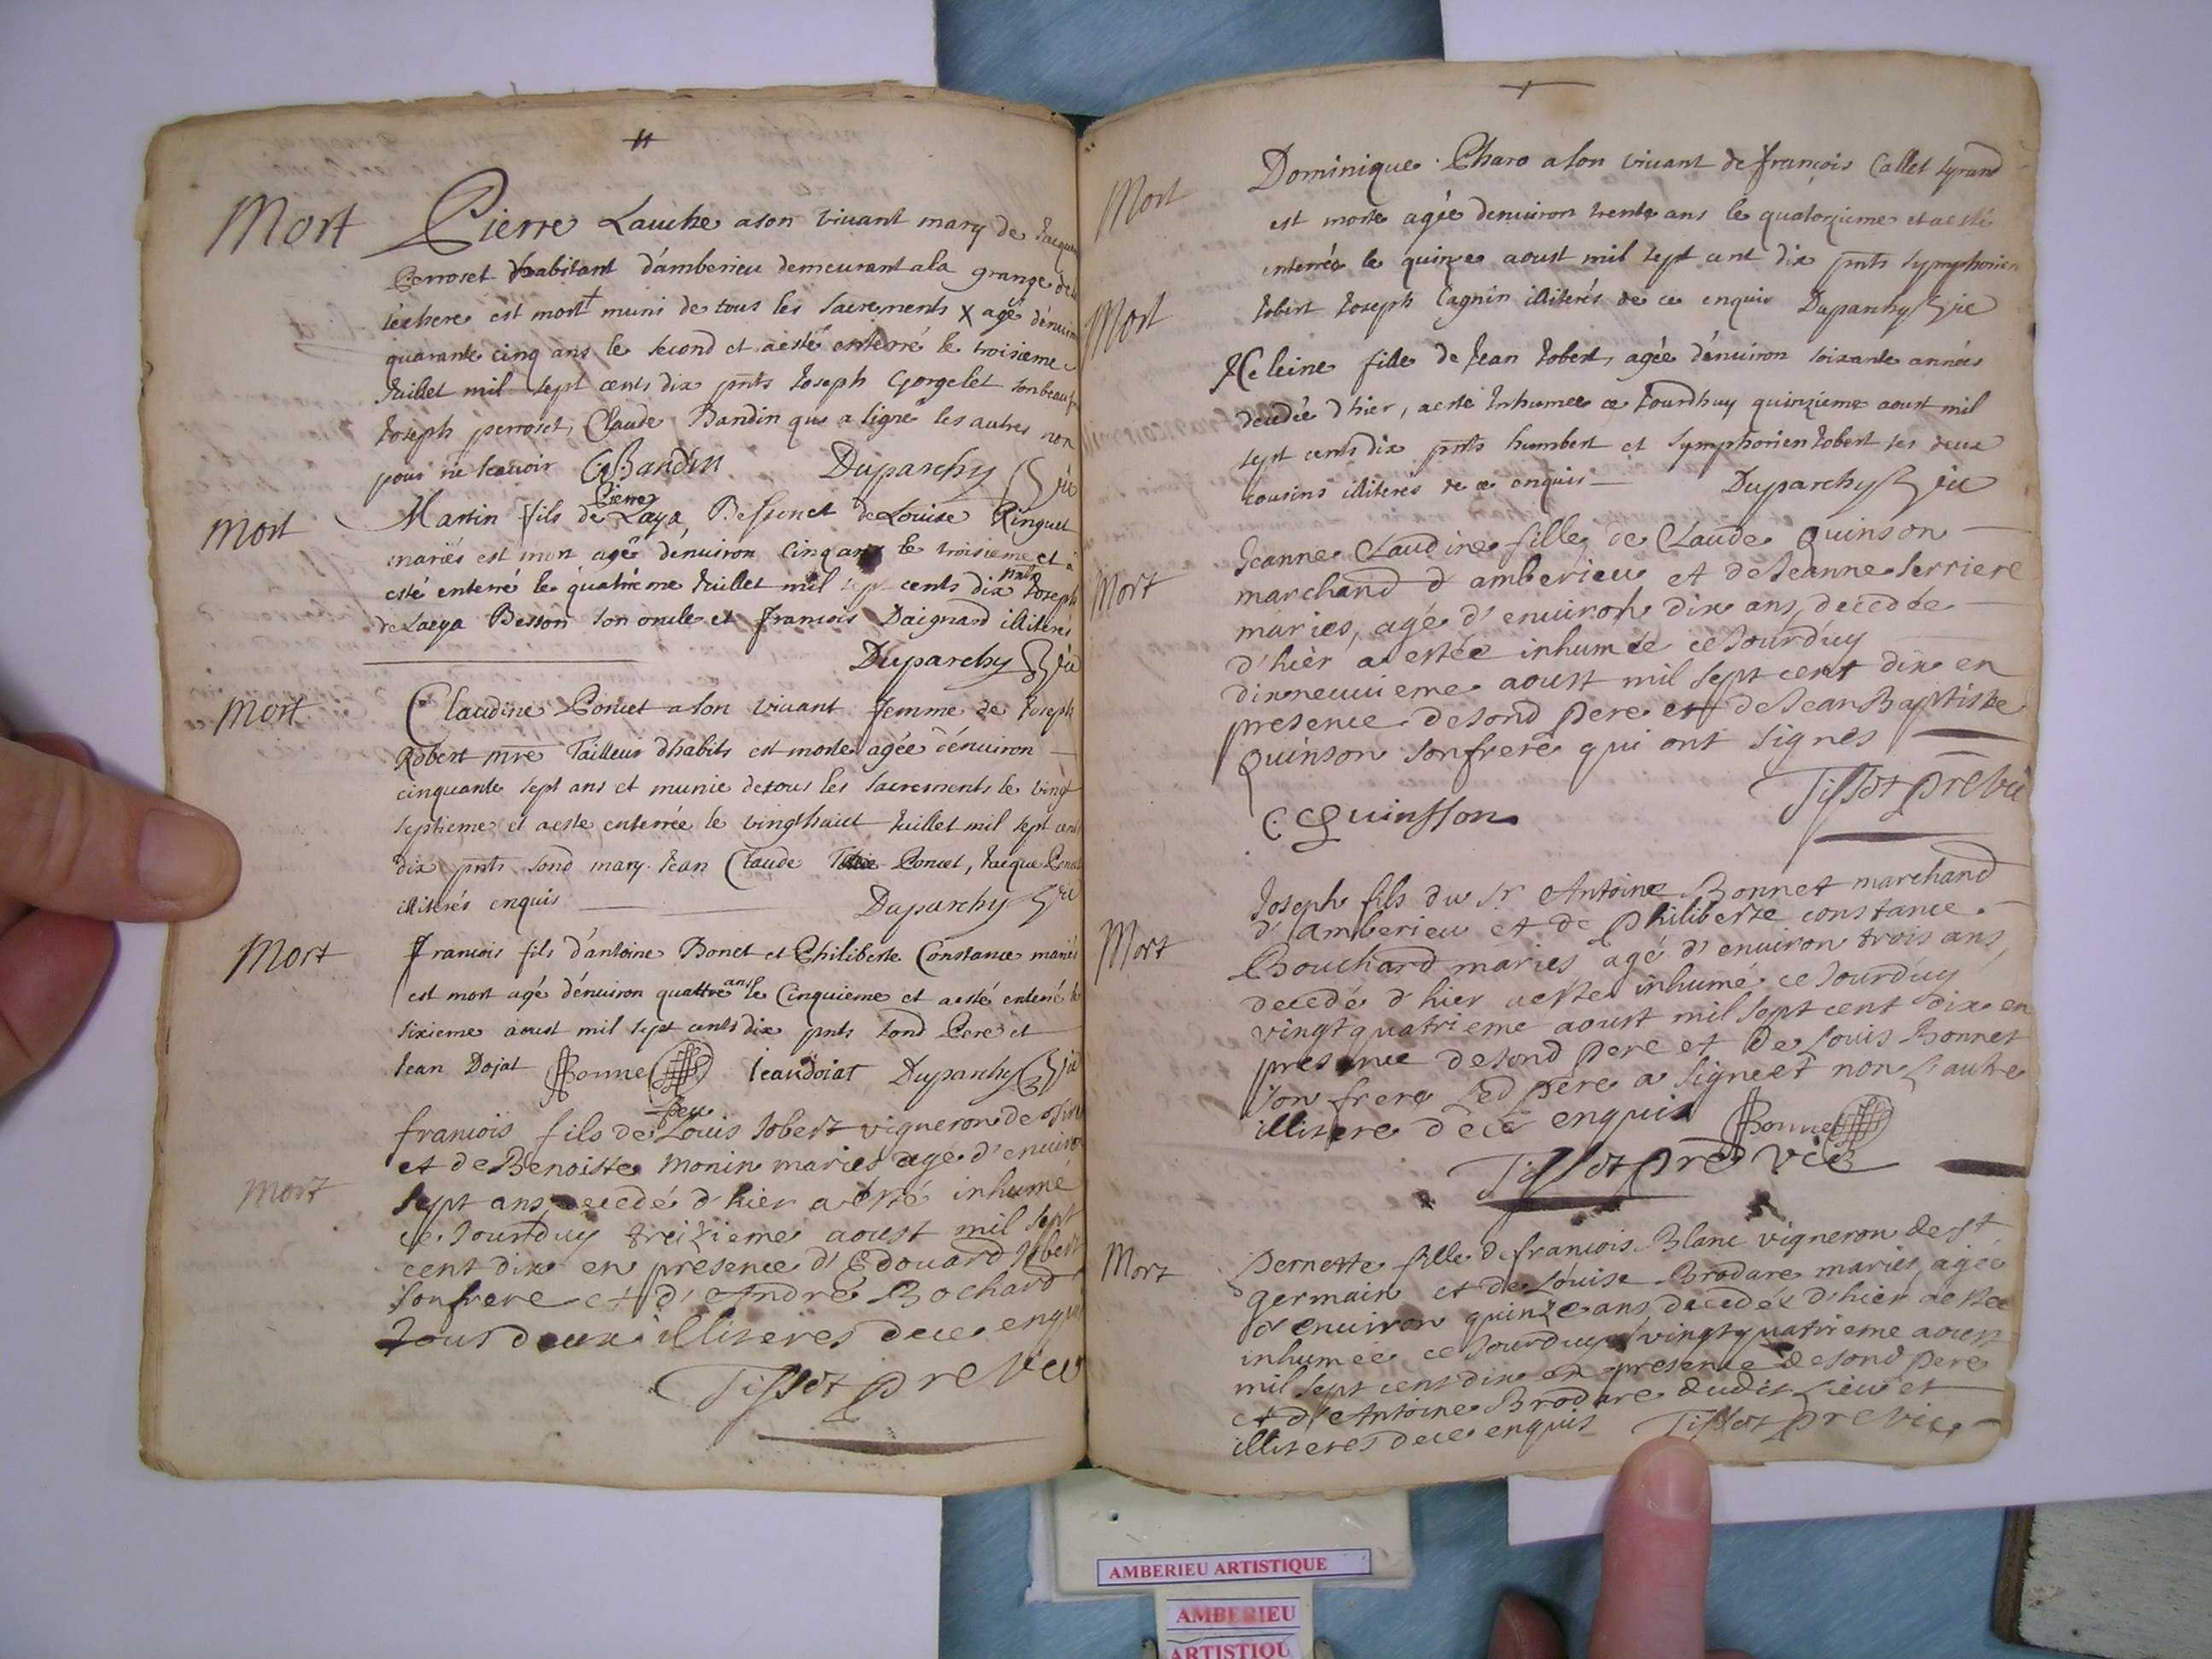 Mort
Pierre Lauche a son vivant mary de Jacqu
Perroset habitant d'amberieu demeurant a la grange de
léchere est mort muni de tous les sacrements X agé dénviro
quarante cinq ans le second et a esté enterré le troisieme
Juillet mil sept cents dix pnts Joseph Gorgelet son beau f
Joseph perroset, Claude Bandin qui a signé les autres non
pour ne scavoir CBandin Duparchy vic
Mort
Martin fils de Pierre Laya Bessonet de Louise Ringuet
mariés est mort agé dénviron Cinq ans le troisieme et a
esté enterré le quatrieme Juillet mil sept cents dix pnts Joseph
de Laeya Besson son oncle et francois Daignard illiterés
Duparchy vic
Mort
Claudine Poncet a son vivant femme de Joseph
Robert mre Tailleur dhabits est morte agée dénviron
cinquante sept ans et munie de tous les sacrements le vingt
septieme et a esté enterrée le vingthuict Juillet mil sept cent
dix pnts sond mary Jean Claude Poncet, Jacque Ponce
illiterés enquis Duparchy vic
Mort
francois fils d'antoine Bonet et Philiberte Constance mariés
est mort agé dénviron quattre ans le Cinquieme et a esté enterré le
sixieme aoust mil sept cents dix pnts sond Pere et
Jean Dojat Bonnet Jean doiat Duparchy vic
Mort
francois fils de feu Louis Jobert vigneron de
et de Benoiste Monin mariés agé d'enviro
sept ans decedé d'hier a esté inhumé
ce Jourd'uy treizieme aoust mil sept
cent dix en presence d'Edouard Jobert
son frere et d'André Bochard
tous deux illiteres de ce enquis
Tissot pre vic
Mort
Dominique Pharo a son vivant de françois Callet tyrand
est morte agée denviron trente ans le quatorzieme et a esté
enterrée le quinze aoust mil sept cent dix pnts symphorien
Jobert Joseph Cagnin illiterés de ce enquis Duparchy vic
Mort
Heleine fille de Jean Jobert, agée d'environ soixante années
decedée d'hier, a esté Inhumee ce Jourdhuy quinzieme aoust mil
sept cents dix pnts humbert et symphorien Jobert ses deux
cousins illiterés de ce enquis Duparchy vic
Mort
Jeanne Claudine fille de Claude Quinson
marchand d'amberieu et de Jeanne Serriere
mariés, agé d'environ dix ans, decedée
d'hier a estée inhumée ce Jourd'uy
dixneuvieme aoust mil sept cent dix en
presence de sond pere et de Jean Baptiste
Quinson son frere qui ont signés
C Quinsson Tissot pre vic
Mort
Joseph fils du Sr Antoine Bonnet marchand
d'amberieu et de philiberte constance
Bouchard mariés agé d'environ trois ans
decedé d'hier a esté inhumé ce Jourd'uy
vingtquatrieme aoust mil sept cent dix en
presence de sond pere et de Louis Bonnet
son frere Led pere a signé et non l'autre
illitere de ce enquis Bonnet
Tissot pre vic
Mort
pernette fille de francois Blanc vigneron de st
germain et de Louise Brodare mariés agée
d'environ quinze ans decedée d'hier a estee
inhumee ce Jourd'uy vingtquatrieme aoust
mil sept cent dix en presence de sond pere
et d'Antoine Brodare dudit Lieu et
illiteres de ce enquis Tissot pre vic
AMBERIEU ARTISTIQUE
AMBERIEU
ARTISTIQU